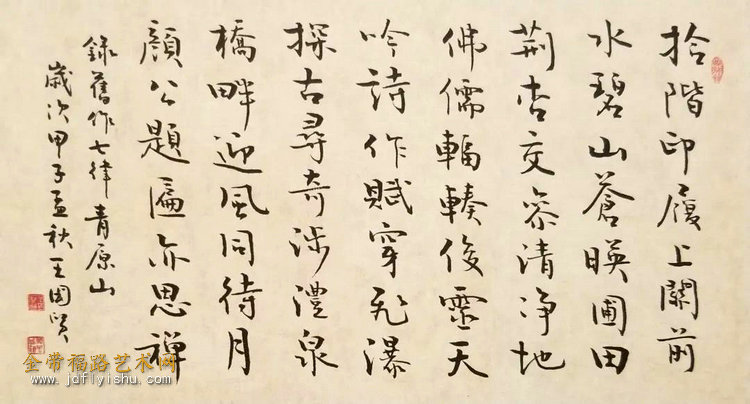 拾階印履上關前
水碧山蒼映圃田
荊杏交參清净地
佛儒輻輳俊靈天
吟詩作賦穿飛瀑
探古尋奇涉澧泉
橋畔迎風同待月
顏公題匾亦思禪
錄舊作七律青原山
歲次甲子孟秋王國賢
金带福路艺术网
www.jdflyishu.com